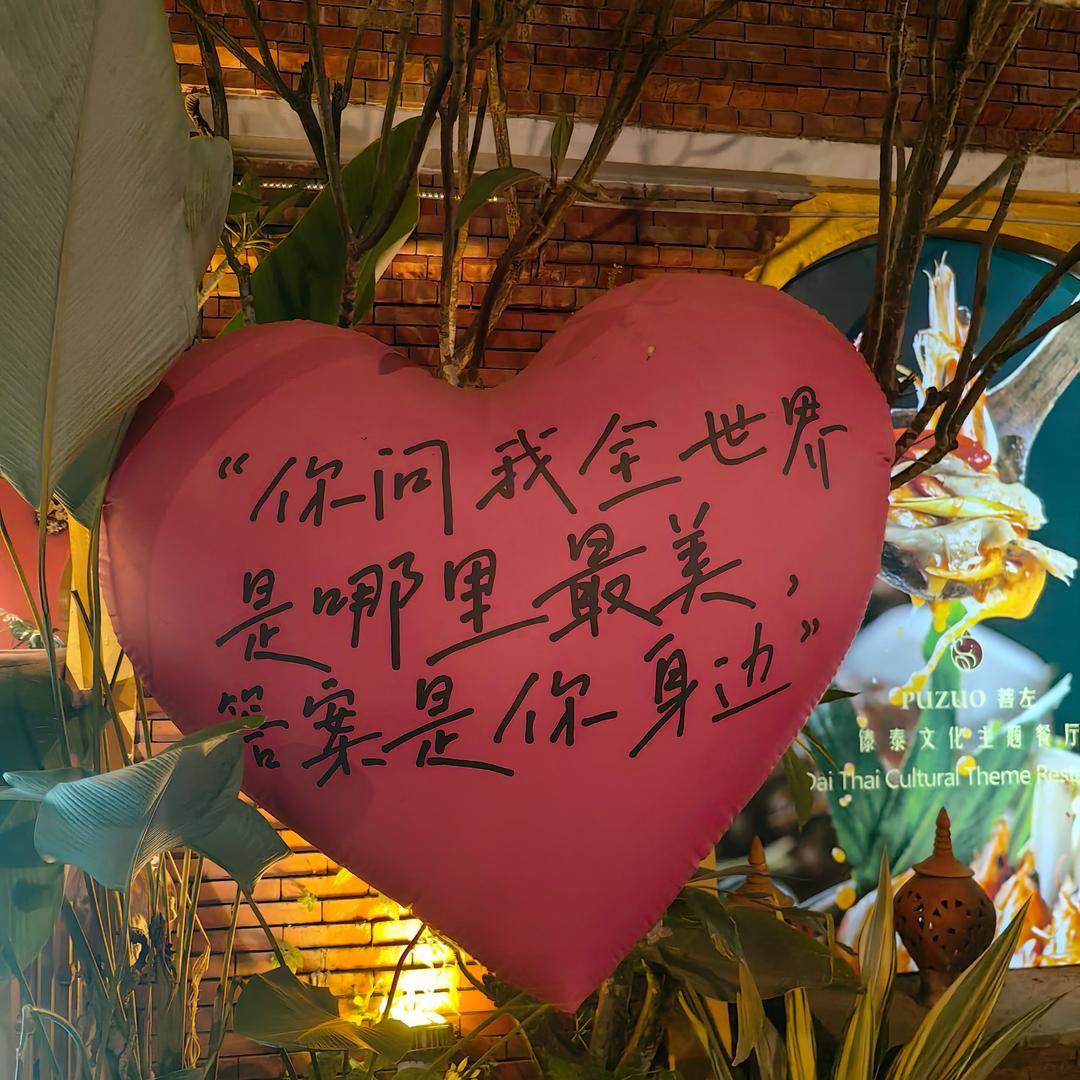 “你问我全世界
是哪里最美，
答案是你身边”
PUZUO 菩左
傣泰文化主题餐厅
Dai Thai Cultural Theme